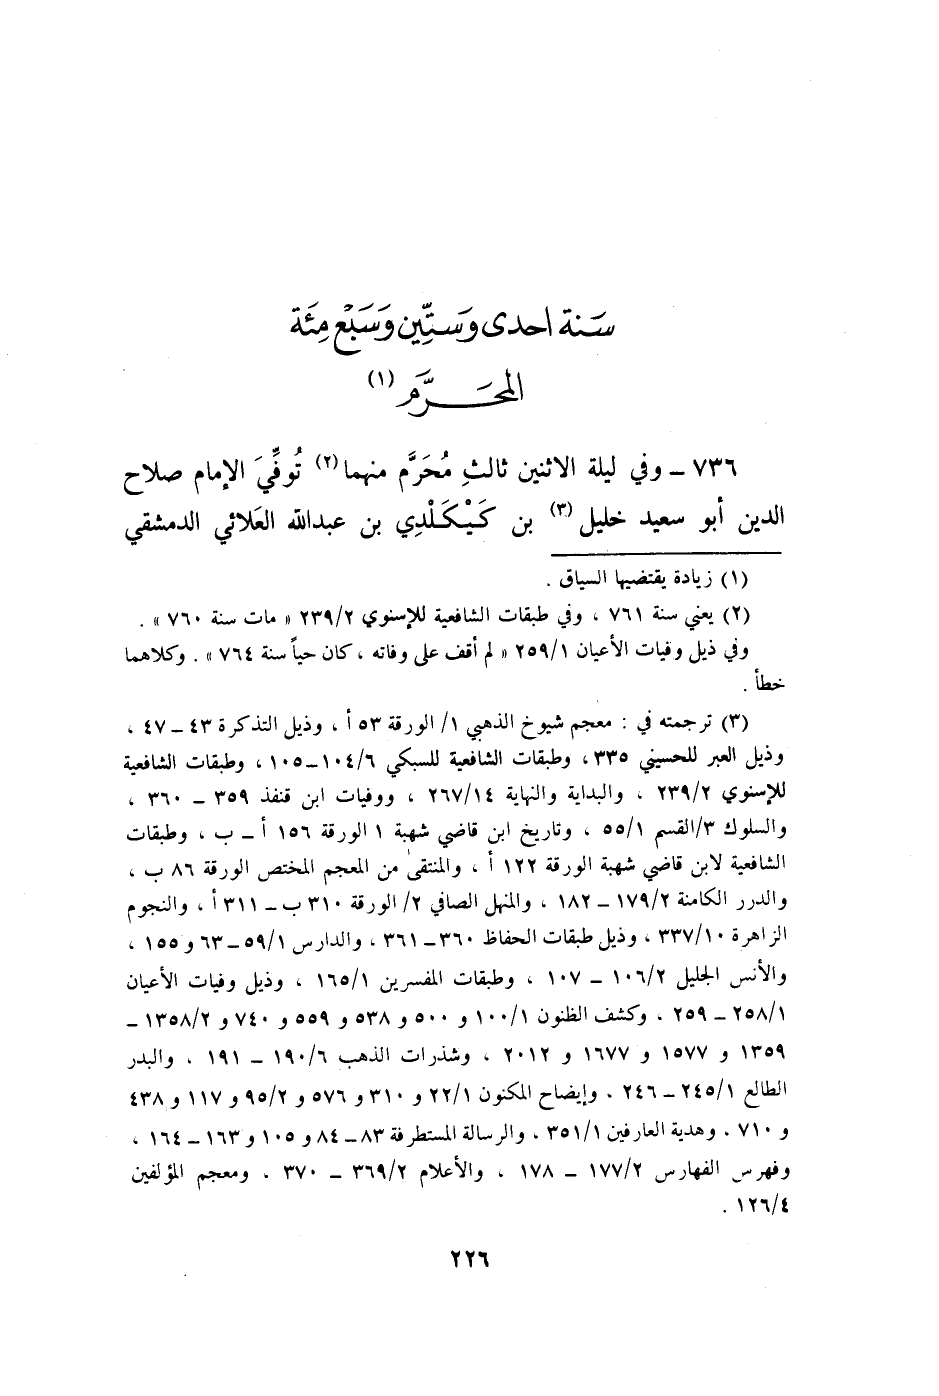 سَنة احدى وَستِّين وَسَبْع مِئَة
المحَرَّم (١)
٧٣٦ ـ وفي ليلة الاثنين ثالثِ مُحَرَّم منهما(٢) تُوفِّيَ الإمام صلاح
الدين أبو سعيد خليل(٣) بن كَيْكَلْدِي بن عبدالله العَلائي الدمشقي
(١) زيادة يقتضيها السياق .
(٢) يعني سنة ٧٦١ ، وفي طبقات الشافعية للإسنوي ٢٣٩/٢ « مات سنة ٧٦٠ » .
وفي ذيل وفيات الأعيان ٢٥٩/١ « لم أقف على وفاته ، كان حياً سنة ٧٦٤ » . وكلاهما
خطأ .
(٣) ترجمته في : معجم شيوخ الذهبي ١/ الورقة ٥٣ أ ، وذيل التذكرة ٤٣ ـ ٤٧ ،
وذيل العبر للحسيني ٣٣٥ ، وطبقات الشافعية للسبكي ١٠٤/٦ـ١٠٥ ، وطبقات الشافعية
للإسنوي ٢٣٩/٢ ، والبداية والنهاية ٢٦٧/١٤ ، ووفيات ابن قنفذ ٣٥٩ ـ ٣٦٠ ،
والسلوك ٣/القسم ٥٥/١ ، وتاريخ ابن قاضي شهبة ١ الورقة ١٥٦ أ ـ ب ، وطبقات
الشافعية لابن قاضي شهبة الورقة ١٢٢ أ ، والمنتقىٰ من المعجم المختص الورقة ٨٦ ب ،
والدرر الكامنة ١٧٩/٢ ـ ١٨٢ ، والمنهل الصافي ٢/ الورقة ٣١٠ ب ـ ٣١١ أ ، والنجوم
الزاهرة ٣٣٧/١٠ ، وذيل طبقات الحفاظ ٣٦٠ ـ ٣٦١ ، والدارس ٥٩/١ ـ ٦٣ و ١٥٥ ،
والأنس الجليل ١٠٦/٢ ـ ١٠٧ ، وطبقات المفسرين ١٦٥/١ ، وذيل وفيات الأعيان
٢٥٨/١ ـ ٢٥٩ ، وكشف الظنون ١٠٠/١ و ٥٠٠ و ٥٣٨ و ٥٥٩ و ٧٤٠ و ١٣٥٨/٢ ـ
١٣٥٩ و ١٥٧٧ و ١٦٧٧ و ٢٠١٢ ، وشذرات الذهب ١٩٠/٦ ـ ١٩١ ، والبدر
الطالع ٢٤٥/١ ـ ٢٤٦ . وإيضاح المكنون ٢٢/١ و ٣١٠ و ٥٧٦ و ٩٥/٢ و ١١٧ و ٤٣٨
و ٧١٠ . وهدية العارفين ٣٥١/١ ، والرسالة المستطرفة ٨٣ ـ ٨٤ و ١٠٥ و ١٦٣ ـ ١٦٤ ،
وفهرس الفهارس ١٧٧/٢ ـ ١٧٨ ، والأعلام ٣٦٩/٢ ـ ٣٧٠ . ومعجم المؤلفين
١٢٦/٤ .
٢٢٦